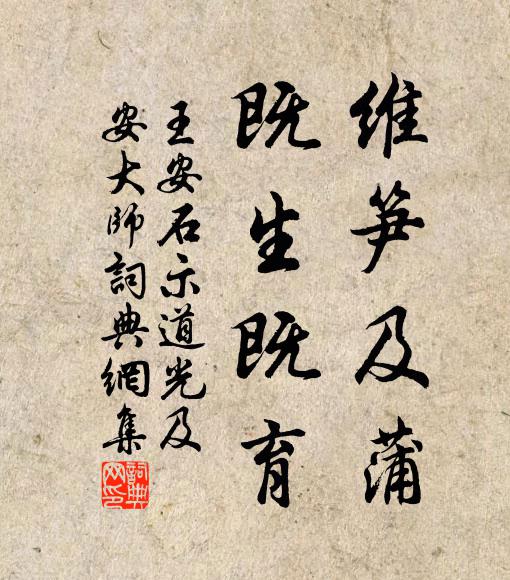 維笋及蒲
既生既育
王安石示道光及
安大師詞典網集
詞典
网印